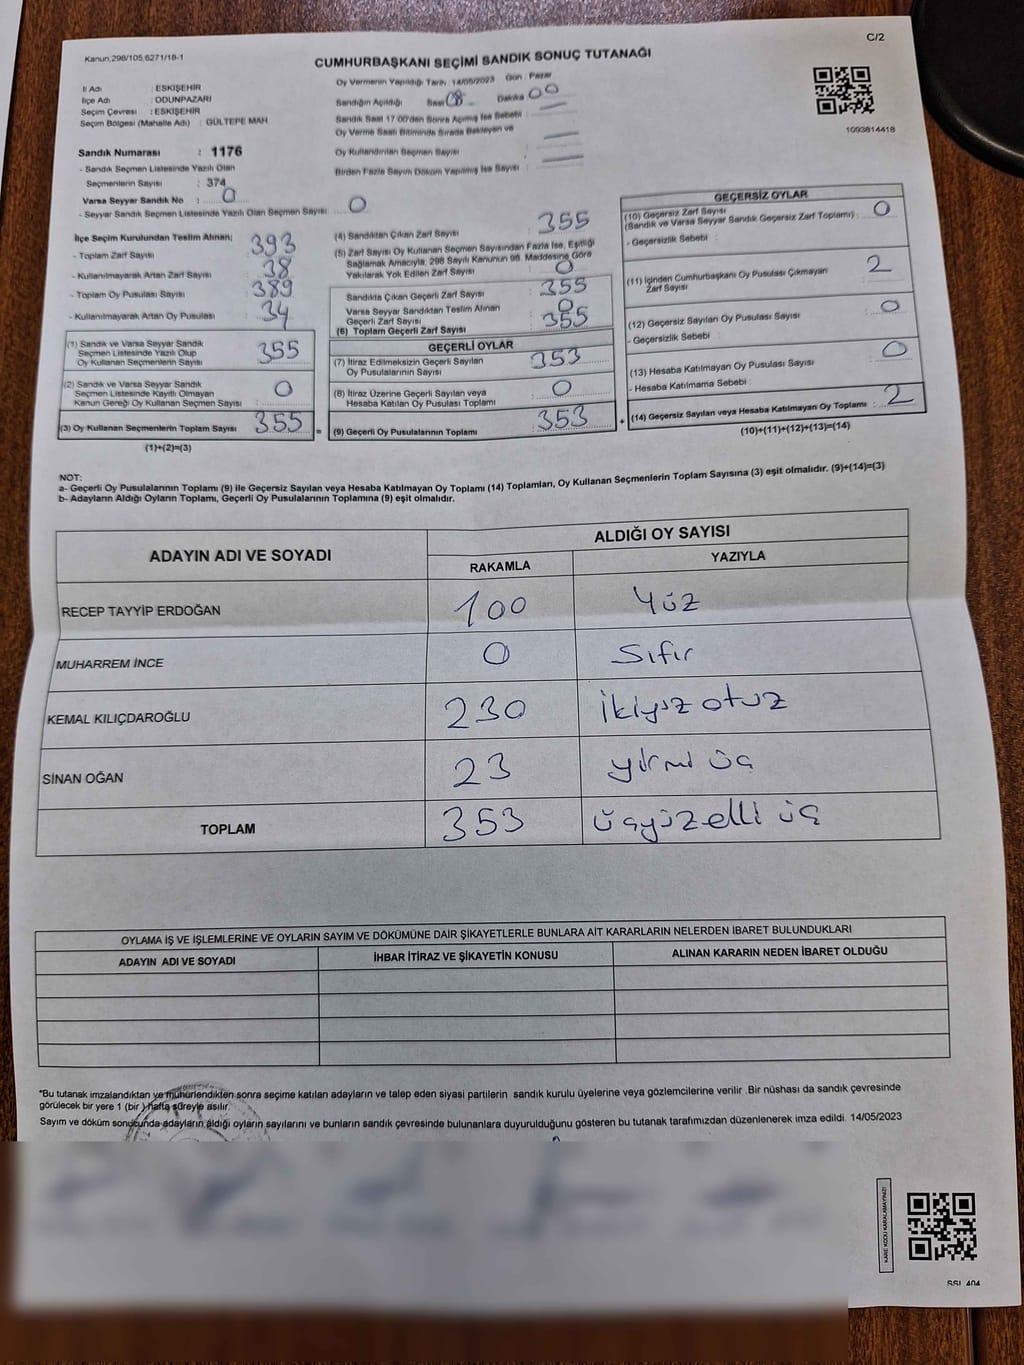 C/2
Kanun,298/105,6271/18-1
CUMHURBAŞKANI SEÇİMİ SANDIK SONUÇ TUTANAĞI
İl Adı : ESKİŞEHİR
İlçe Adı : ODUNPAZARI
Seçim Çevresi : ESKİŞEHİR
Seçim Bölgesi (Mahalle Adı) : GÜLTEPE MAH
Oy Vermenin Yapıldığı Tarih : 14/05/2023 Gün : Pazar
Sandığın Açıldığı Saat 08 Dakika 00
Sandık Saat 17:00'den Sonra Açılmış İse Sebebi :
Oy Verme Saati Bitiminde Sırada Bekleyen ve
Oy Kullandırılan Seçmen Sayısı :
Birden Fazla Sayım Döküm Yapılmış İse Sayısı :
1093814418
Sandık Numarası : 1176
- Sandık Seçmen Listesinde Yazılı Olan
Seçmenlerin Sayısı : 374
Varsa Seyyar Sandık No : 0
- Seyyar Sandık Seçmen Listesinde Yazılı Olan Seçmen Sayısı : 0
İlçe Seçim Kurulundan Teslim Alınan;
- Toplam Zarf Sayısı : 393
- Kullanılmayarak Artan Zarf Sayısı : 38
- Toplam Oy Pusulası Sayısı : 389
- Kullanılmayarak Artan Oy Pusulası : 34
(1) Sandık ve Varsa Seyyar Sandık
Seçmen Listesinde Yazılı Olup
Oy Kullanan Seçmenlerin Sayısı : 355
(2) Sandık ve Varsa Seyyar Sandık
Seçmen Listesinde Kayıtlı Olmayan
Kanun Gereği Oy Kullanan Seçmen Sayısı : 0
(3) Oy Kullanan Seçmenlerin Toplam Sayısı : 355 =
(1)+(2)=(3)
(4) Sandıktan Çıkan Zarf Sayısı : 355
(5) Zarf Sayısı Oy Kullanan Seçmen Sayısından Fazla İse, Eşitliği
Sağlamak Amacıyla, 298 Sayılı Kanunun 98. Maddesine Göre
Yakılarak Yok Edilen Zarf Sayısı : 0
Sandıkta Çıkan Geçerli Zarf Sayısı : 355
Varsa Seyyar Sandıktan Teslim Alınan
Geçerli Zarf Sayısı : 0
(6) Toplam Geçerli Zarf Sayısı : 355
GEÇERLİ OYLAR
(7) İtiraz Edilmeksizin Geçerli Sayılan
Oy Pusulalarının Sayısı : 353
(8) İtiraz Üzerine Geçerli Sayılan veya
Hesaba Katılan Oy Pusulası Toplamı : 0
(9) Geçerli Oy Pusulalarının Toplamı : 353 +
GEÇERSİZ OYLAR
(10) Geçersiz Zarf Sayısı : 0
(Sandık ve Varsa Seyyar Sandık Geçersiz Zarf Toplamı)
- Geçersizlik Sebebi :
(11) İçinden Cumhurbaşkanı Oy Pusulası Çıkmayan
Zarf Sayısı : 2
(12) Geçersiz Sayılan Oy Pusulası Sayısı : 0
- Geçersizlik Sebebi :
(13) Hesaba Katılmayan Oy Pusulası Sayısı : 0
- Hesaba Katılmama Sebebi :
(14) Geçersiz Sayılan veya Hesaba Katılmayan Oy Toplamı : 2
(10)+(11)+(12)+(13)=(14)
NOT:
a- Geçerli Oy Pusulalarının Toplamı (9) ile Geçersiz Sayılan veya Hesaba Katılmayan Oy Toplamı (14) Toplamları, Oy Kullanan Seçmenlerin Toplam Sayısına (3) eşit olmalıdır. (9)+(14)=(3)
b- Adayların Aldığı Oyların Toplamı, Geçerli Oy Pusulalarının Toplamına (9) eşit olmalıdır.
ADAYIN ADI VE SOYADI
ALDIĞI OY SAYISI
RAKAMLA YAZIYLA
RECEP TAYYİP ERDOĞAN 100 Yüz
MUHARREM İNCE 0 Sıfır
KEMAL KILIÇDAROĞLU 230 İkiyüz otuz
SİNAN OĞAN 23 yirmi üç
TOPLAM 353 üçyüzelli üç
OYLAMA İŞ VE İŞLEMLERİNE VE OYLARIN SAYIM VE DÖKÜMÜNE DAİR ŞİKAYETLERLE BUNLARA AİT KARARLARIN NELERDEN İBARET BULUNDUKLARI
ADAYIN ADI VE SOYADI İHBAR İTİRAZ VE ŞİKAYETİN KONUSU ALINAN KARARIN NEDEN İBARET OLDUĞU
*Bu tutanak imzalandıktan ve mühürlendikten sonra seçime katılan adayların ve talep eden siyasi partilerin sandık kurulu üyelerine veya gözlemcilerine verilir .Bir nüshası da sandık çevresinde
görülecek bir yere 1 (bir ) hafta süreyle asılır.
Sayım ve döküm sonucunda adayların aldığı oyların sayılarını ve bunların sandık çevresinde bulunanlara duyurulduğunu gösteren bu tutanak tarafımızdan düzenlenerek imza edildi. 14/05/2023
KARE KODU KARALAMAYINIZ!